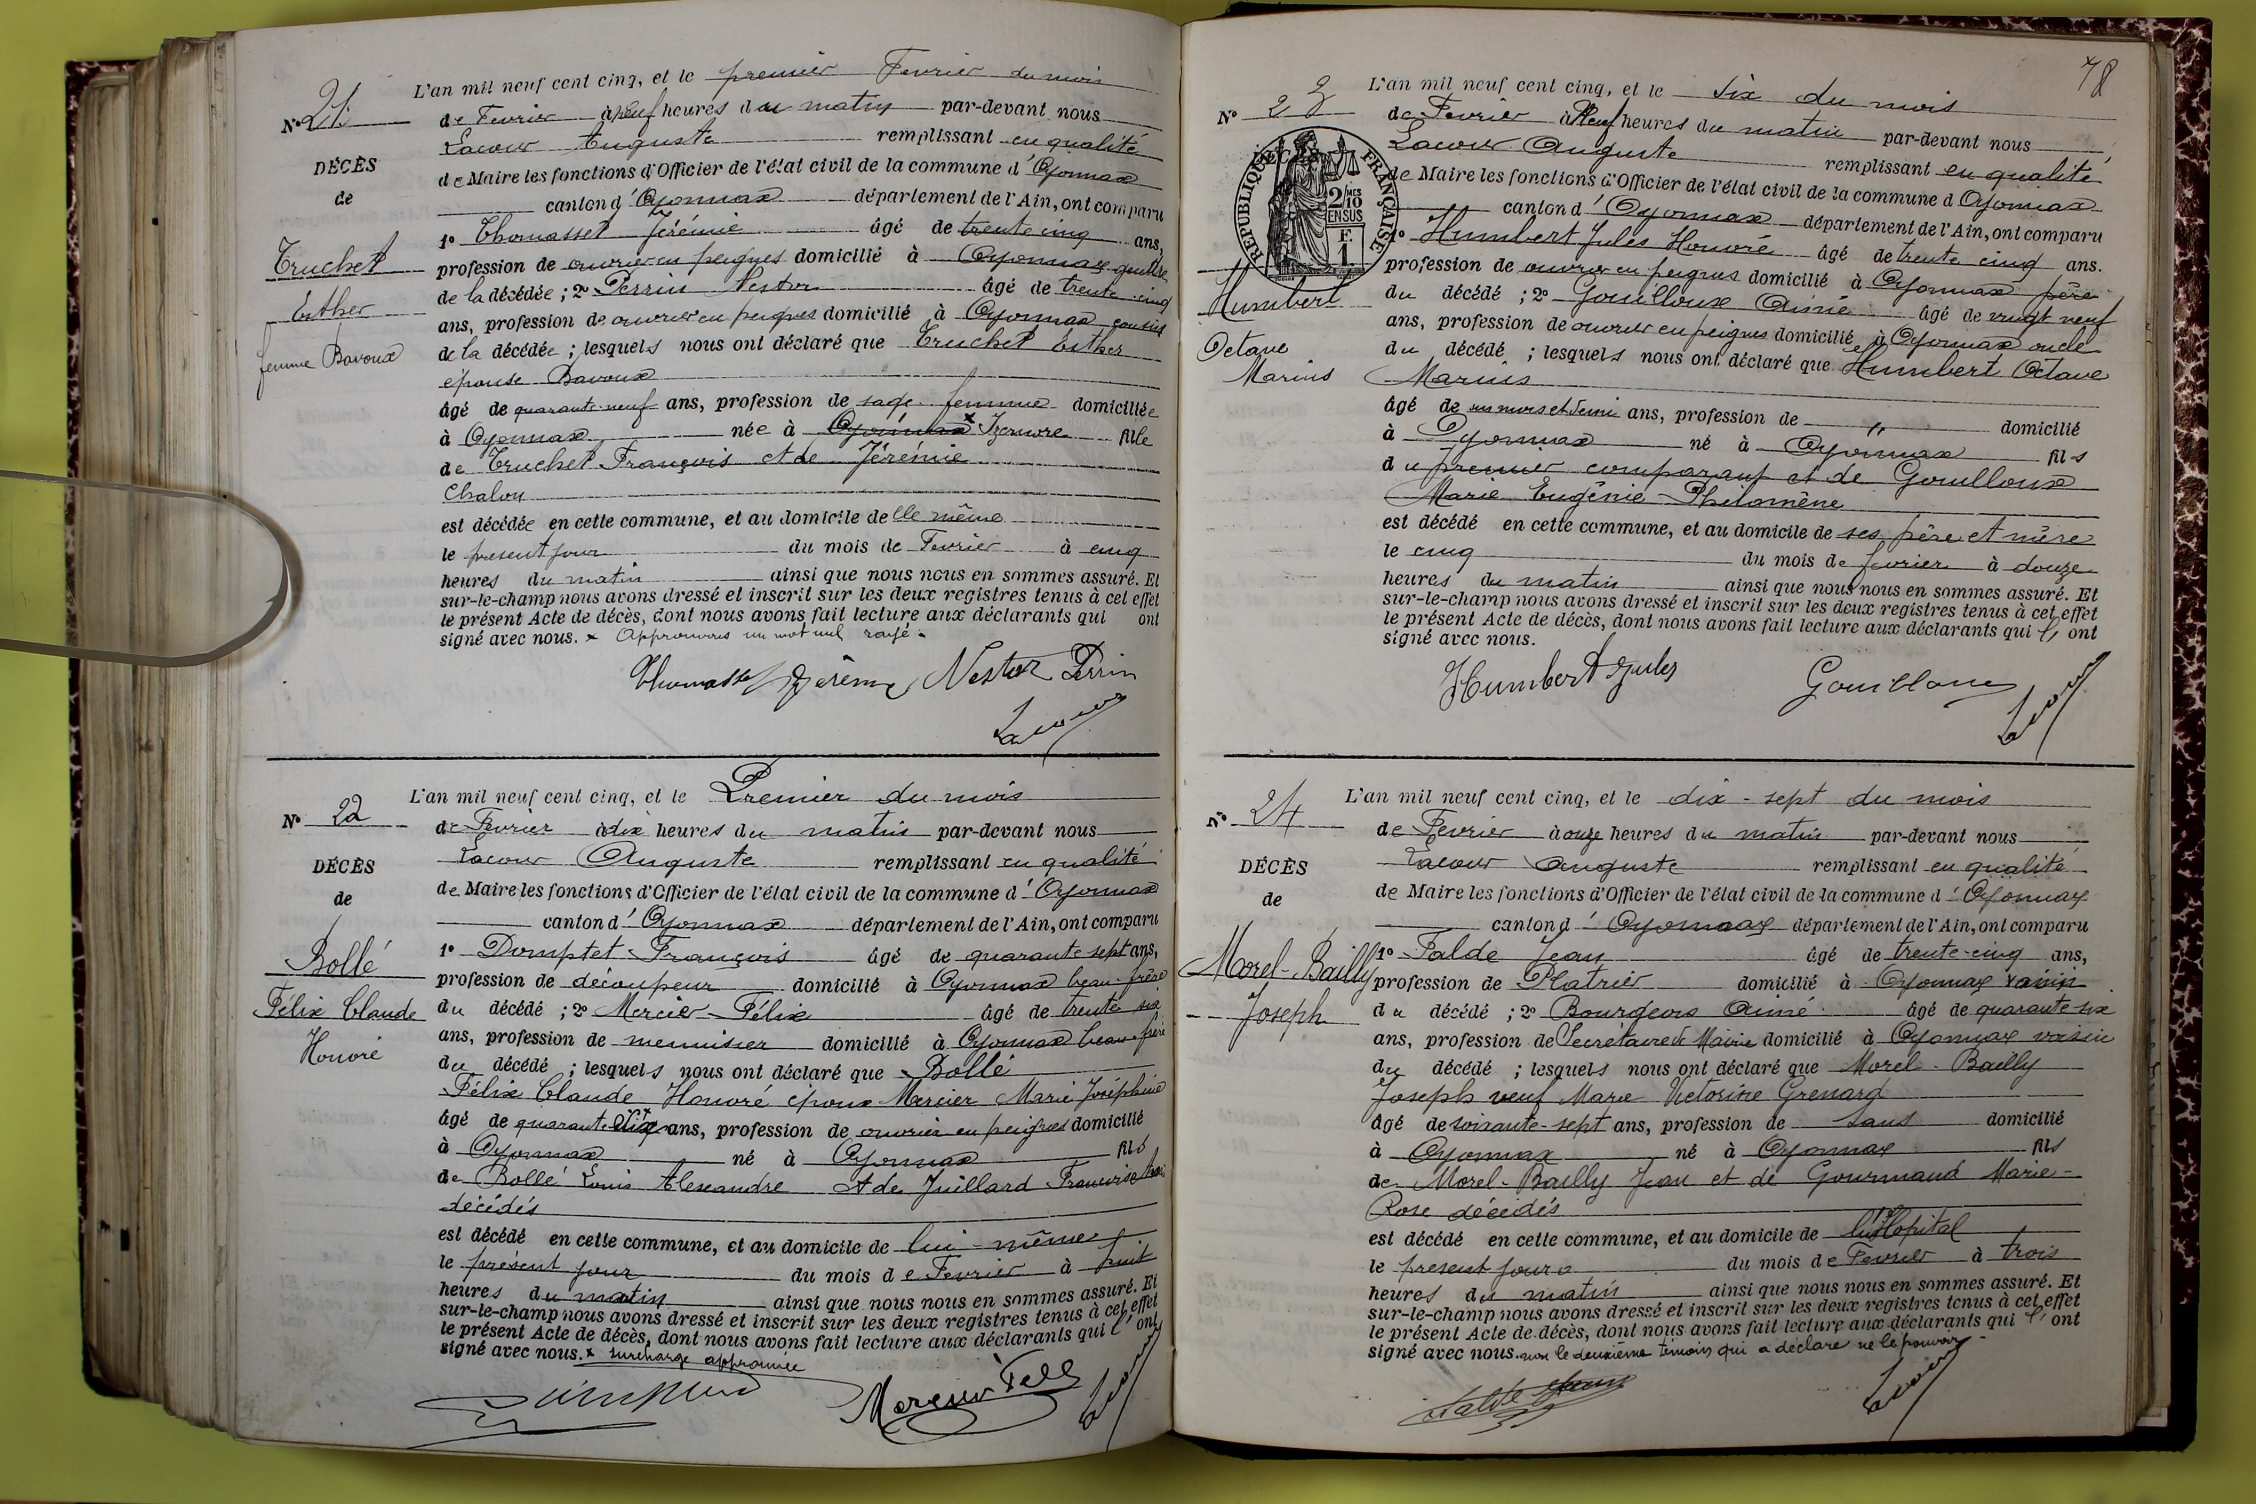 L'an mil neuf cent cinq, et le premier Fevrier du mois
N° 21
de Fevrier à neuf heures du matin par-devant nous
Lacour Auguste remplissant en qualité
DÉCÈS
de Maire les fonctions d'Officier de l'état civil de la commune d'Oyonnax
de
canton d'Oyonnax département de l'Ain, ont comparu
1° Thomasset Jérémie âgé de trente cinq ans,
Truchet
profession de ouvrier en peignes domicilié à Oyonnax gendre
de la décédée ; 2° Perrin Nestor âgé de trente-cinq
Esther
ans, profession de ouvrier en peignes domicilié à Oyonnax cousin
femme Bavoux
de la décédée ; lesquels nous ont déclaré que Truchet Esther
épouse Bavoux
âgé de quarante-neuf ans, profession de sage-femme domiciliée
à Oyonnax née à Oyonnax x Izernore fille
de Truchet François et de Jérémie
Chalon
est décédée en cette commune, et au domicile de elle même
le présent jour du mois de Fevrier à cinq
heures du matin ainsi que nous nous en sommes assuré. Et
sur-le-champ nous avons dressé et inscrit sur les deux registres tenus à cet effet
le présent Acte de décès, dont nous avons fait lecture aux déclarants qui ont
signé avec nous. x Approuvons un mot nul rayé.
Thomasset Jérémie Nestor Perrin
Lacour
L'an mil neuf cent cinq, et le Premier du mois
N° 22
de Fevrier à dix heures du matin par-devant nous
Lacour Auguste remplissant en qualité
DÉCÈS
de Maire les fonctions d'Officier de l'état civil de la commune d'Oyonnax
de
canton d'Oyonnax département de l'Ain, ont comparu
1° Domptet François âgé de quarante sept ans,
Bollé
profession de découpeur domicilié à Oyonnax beau-frère
Félix Claude
du décédé ; 2° Mercier Félix âgé de trente six
ans, profession de menuisier domicilié à Oyonnax beau-frère
Honoré
du décédé ; lesquels nous ont déclaré que Bollé
Félix Claude Honoré époux Mercier Marie Joséphine
âgé de quarante ans, profession de ouvrier en peignes domicilié
à Oyonnax né à Oyonnax fils
de Bollé Louis Alexandre et de Juillard Françoise
décédés
est décédé en cette commune, et au domicile de lui-même
le présent jour du mois de Fevrier à huit
heures du matin ainsi que nous nous en sommes assuré. Et
sur-le-champ nous avons dressé et inscrit sur les deux registres tenus à cet effet
le présent Acte de décès, dont nous avons fait lecture aux déclarants qui l'ont
signé avec nous. x surcharge approuvée
Mercier Félix
Lacour
78
L'an mil neuf cent cinq, et le six du mois
N° 23
de Fevrier à Neuf heures du matin par-devant nous
Lacour Auguste remplissant en qualité
RÉPUBLIQUE FRANÇAISE
2/10 MES
EN SUS
F.
1
de Maire les fonctions d'Officier de l'état civil de la commune d Oyonnax
canton d'Oyonnax département de l'Ain, ont comparu
1° Humbert Jules Honoré âgé de trente cinq ans.
Humbert
profession de ouvrier en peignes domicilié à Oyonnax père
du décédé ; 2° Gouilloux Aimé âgé de vingt neuf
ans, profession de ouvrier en peignes domicilié à Oyonnax oncle
Octave
du décédé ; lesquels nous ont déclaré que Humbert Octave
Marius
Marius
âgé de un mois et demi ans, profession de " domicilié
à Oyonnax né à Oyonnax fils
du premier comparant et de Gouilloux
Marie Eugénie Philomène
est décédé en cette commune, et au domicile de ses père et mère
le cinq du mois de fevrier à douze
heures du matin ainsi que nous nous en sommes assuré. Et
sur-le-champ nous avons dressé et inscrit sur les deux registres tenus à cet effet
le présent Acte de décès, dont nous avons fait lecture aux déclarants qui l'ont
signé avec nous.
Humbert Jules Gouilloux
Lacour
L'an mil neuf cent cinq, et le dix-sept du mois
N° 24
de Fevrier à onze heures du matin par-devant nous
Lacour Auguste remplissant en qualité
DÉCÈS
de Maire les fonctions d'Officier de l'état civil de la commune d'Oyonnax
de
canton d'Oyonnax département de l'Ain, ont comparu
1° Falde Jean âgé de trente-cinq ans,
Morel-Bailly
profession de Platrier domicilié à Oyonnax voisin
Joseph
du décédé ; 2° Bourgeois Aimé âgé de quarante six
ans, profession de Secrétaire de Mairie domicilié à Oyonnax voisin
du décédé ; lesquels nous ont déclaré que Morel-Bailly
Joseph veuf Marie Victorine Grenard
âgé de soixante-sept ans, profession de sans domicilié
à Oyonnax né à Oyonnax fils
de Morel-Bailly Jean et de Gourmand Marie-
Rose décédés
est décédé en cette commune, et au domicile de l'Hôpital
le présent jour du mois de Fevrier à trois
heures du matin ainsi que nous nous en sommes assuré. Et
sur-le-champ nous avons dressé et inscrit sur les deux registres tenus à cet effet
le présent Acte de décès, dont nous avons fait lecture aux déclarants qui l'ont
signé avec nous. non le deuxième témoin qui a déclaré ne le pouvoir
Falde Jean
Lacour